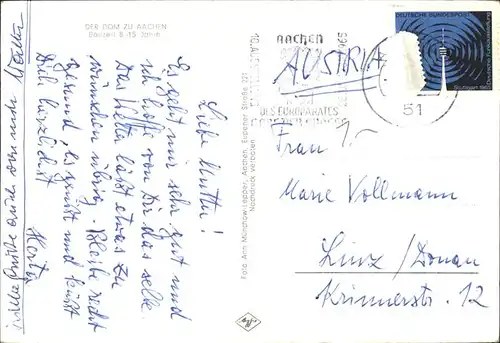 DER DOM ZU AACHEN
Bauzeit 8.-15. Jahrh.
Liebe Mutter!
Es geht mir sehr gut und
ich hoffe von Dir das selbe.
Das Wetter läßt etwas zu
wünschen übrig. Bleibe recht
gesund, es grüßt und küßt
Dich herzlichst
Herta
Grüße auch von
Foto: Ann Münchow-Lepper, Aachen, Eupener Straße 121
Nachdruck verboten
Agfa
AACHEN
DES EUROPARATES
51
DEUTSCHE BUNDESPOST
Stuttgart 1965
AUSTRIA
1,-
Frau
Marie Vollmann
Linz/Donau
Krinnerstr. 12